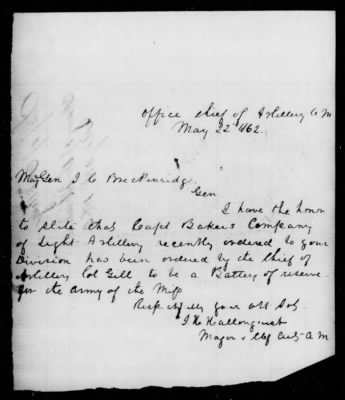 Office Chief of Artillery A. M
May 22 1862.
Maj Gen J. C Breckinridge
Gen
I have the honor
to state that Capt Bakers Company
of Light Artillery recently ordered to your
Division has been ordered by the Chief of
Artillery Col Gill to be a Battery of reserve
for the Army of the Miss
Respectfully your obt Svt.
J. H. Hallonquist
Major & Chf Arty A. M